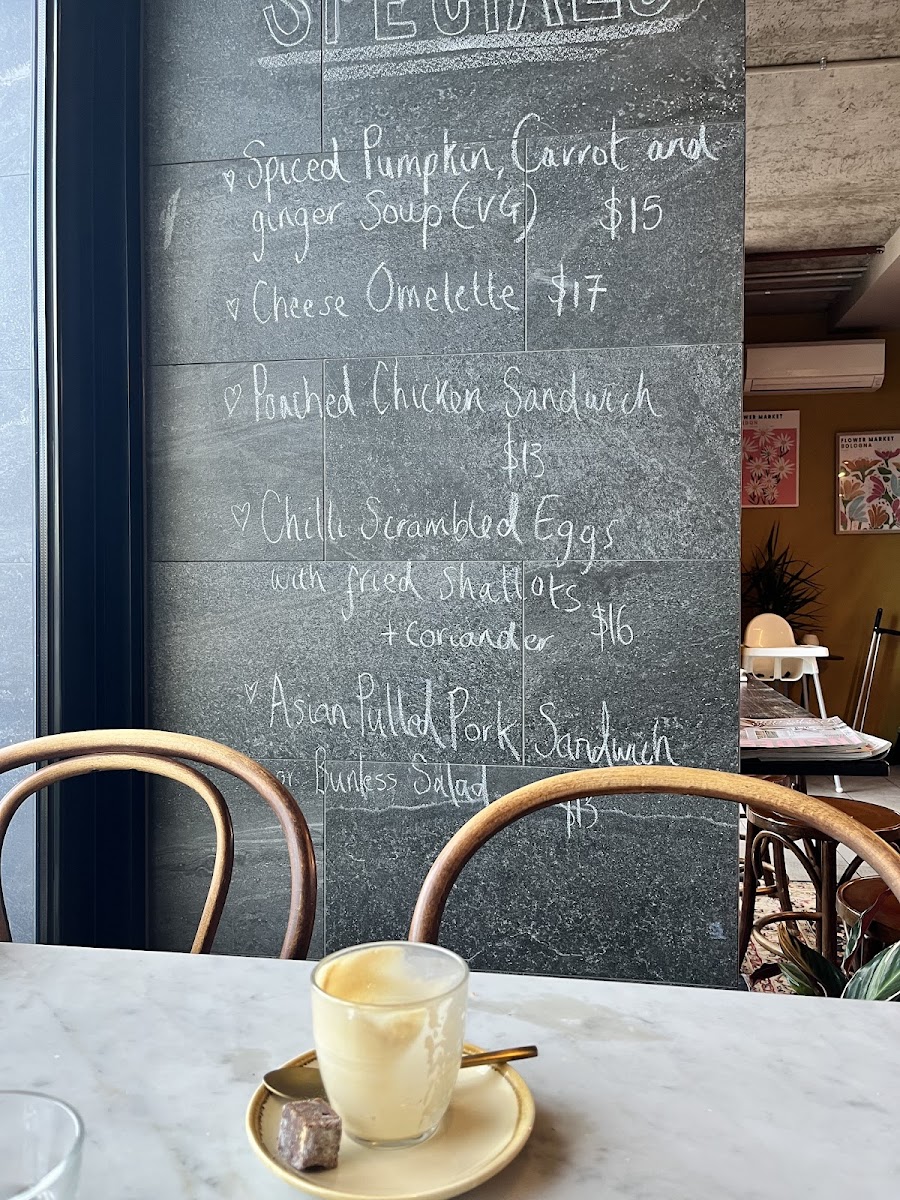 SPECIALS
Spiced Pumpkin, Carrot and
ginger Soup (VG) $15
Cheese Omelette $17
Poached Chicken Sandwich
$13
Chilli Scrambled Eggs
with fried Shallots
+ Coriander $16
Asian Pulled Pork Sandwich
or Bunless Salad
$15
FLOWER MARKET
BOLOGNA